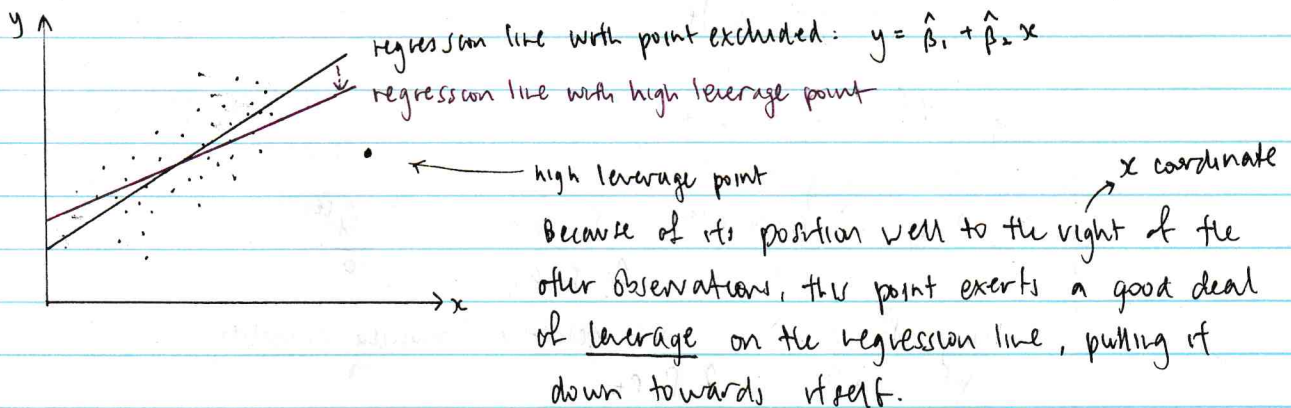 y
regression line with point excluded: y = β̂₁ + β̂₂ x
regression line with high leverage point
high leverage point
x coordinate
Because of its position well to the right of the
other observations, this point exerts a good deal
of leverage on the regression line, pulling it
down towards itself.
x